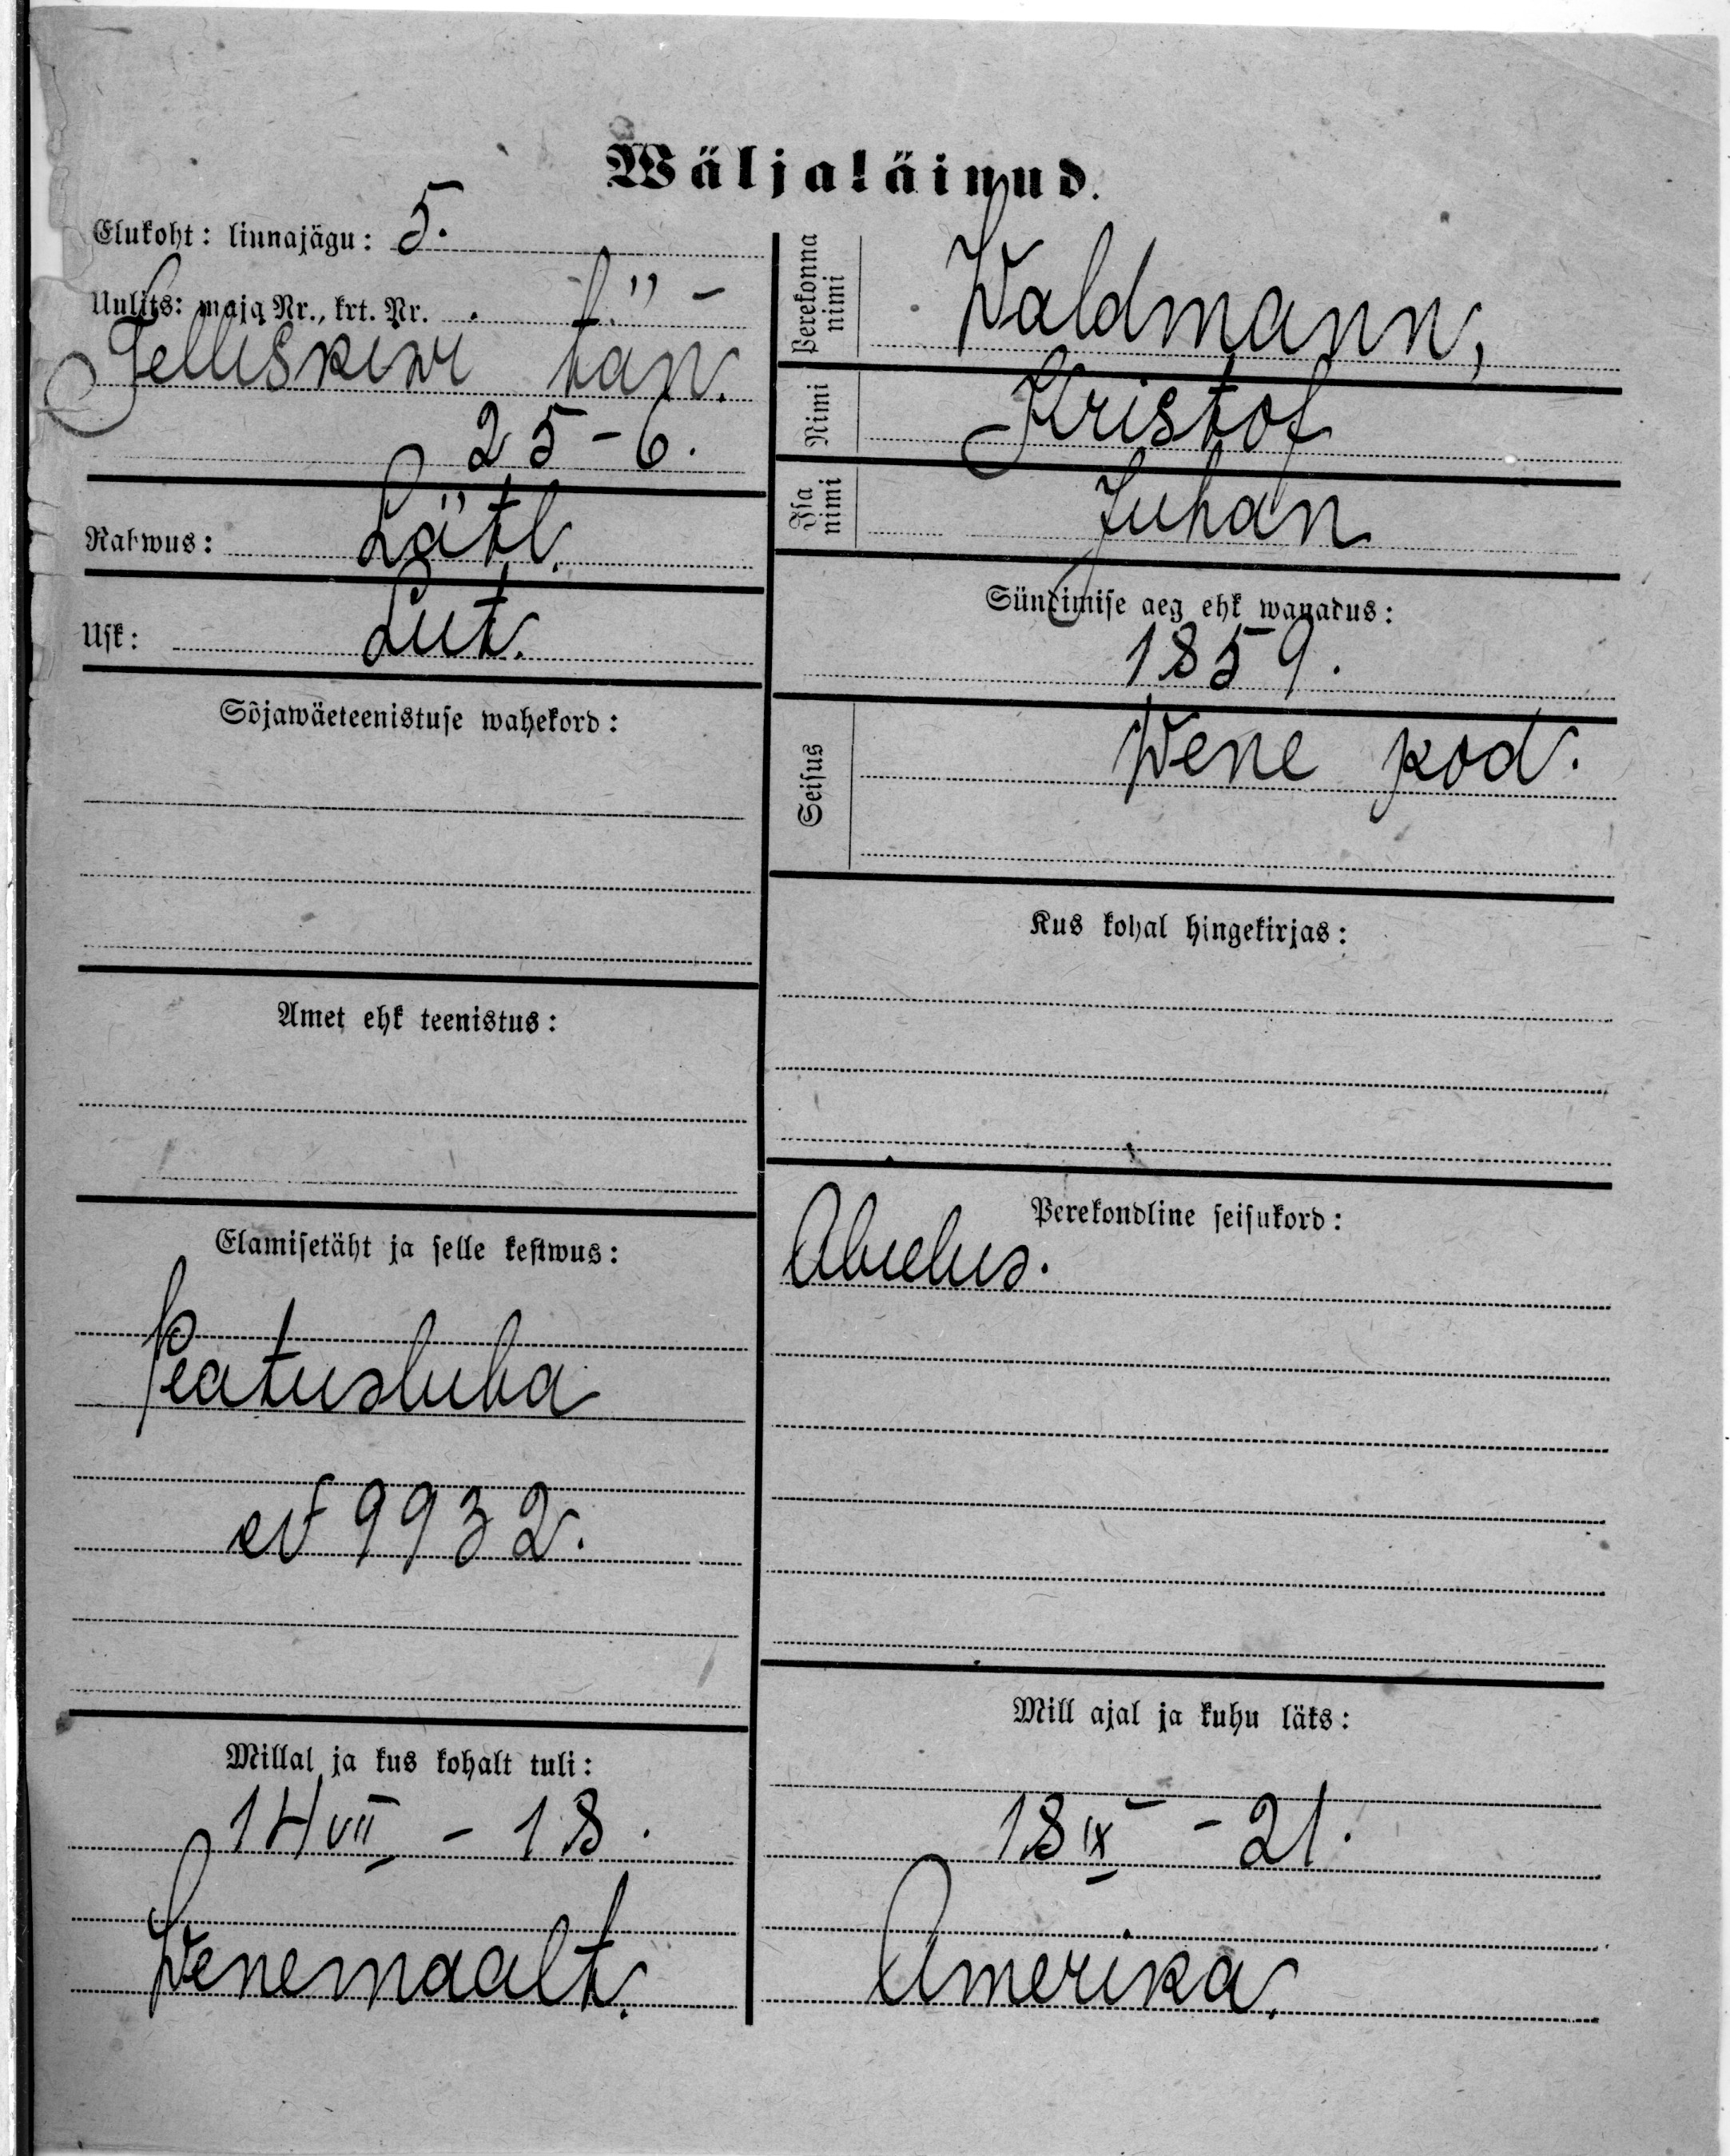 Wäljaläinud.
Elukoht: linnajägu: 5.
Uulits: maja Nr., krt. Nr.
Telliskiwi tän.
25-6.
Rahwus: Lätl.
Usk: Lut.
Sõjawäeteenistuse wahekord:
Amet ehk teenistus:
Elamisetäht ja selle kestwus:
Peatusluba
№ 9932.
Millal ja kus kohalt tuli:
14 VII - 18.
Wenemaalt.
Perekonna nimi Waldmann,
Nimi Kristof
Isa nimi Juhan
Sündimise aeg ehk wanadus:
1859.
Seisus Wene kod.
Kus kohal hingekirjas:
Perekondline seisukord:
Abielus.
Mill ajal ja kuhu läks:
18 IX - 21.
Amerika.